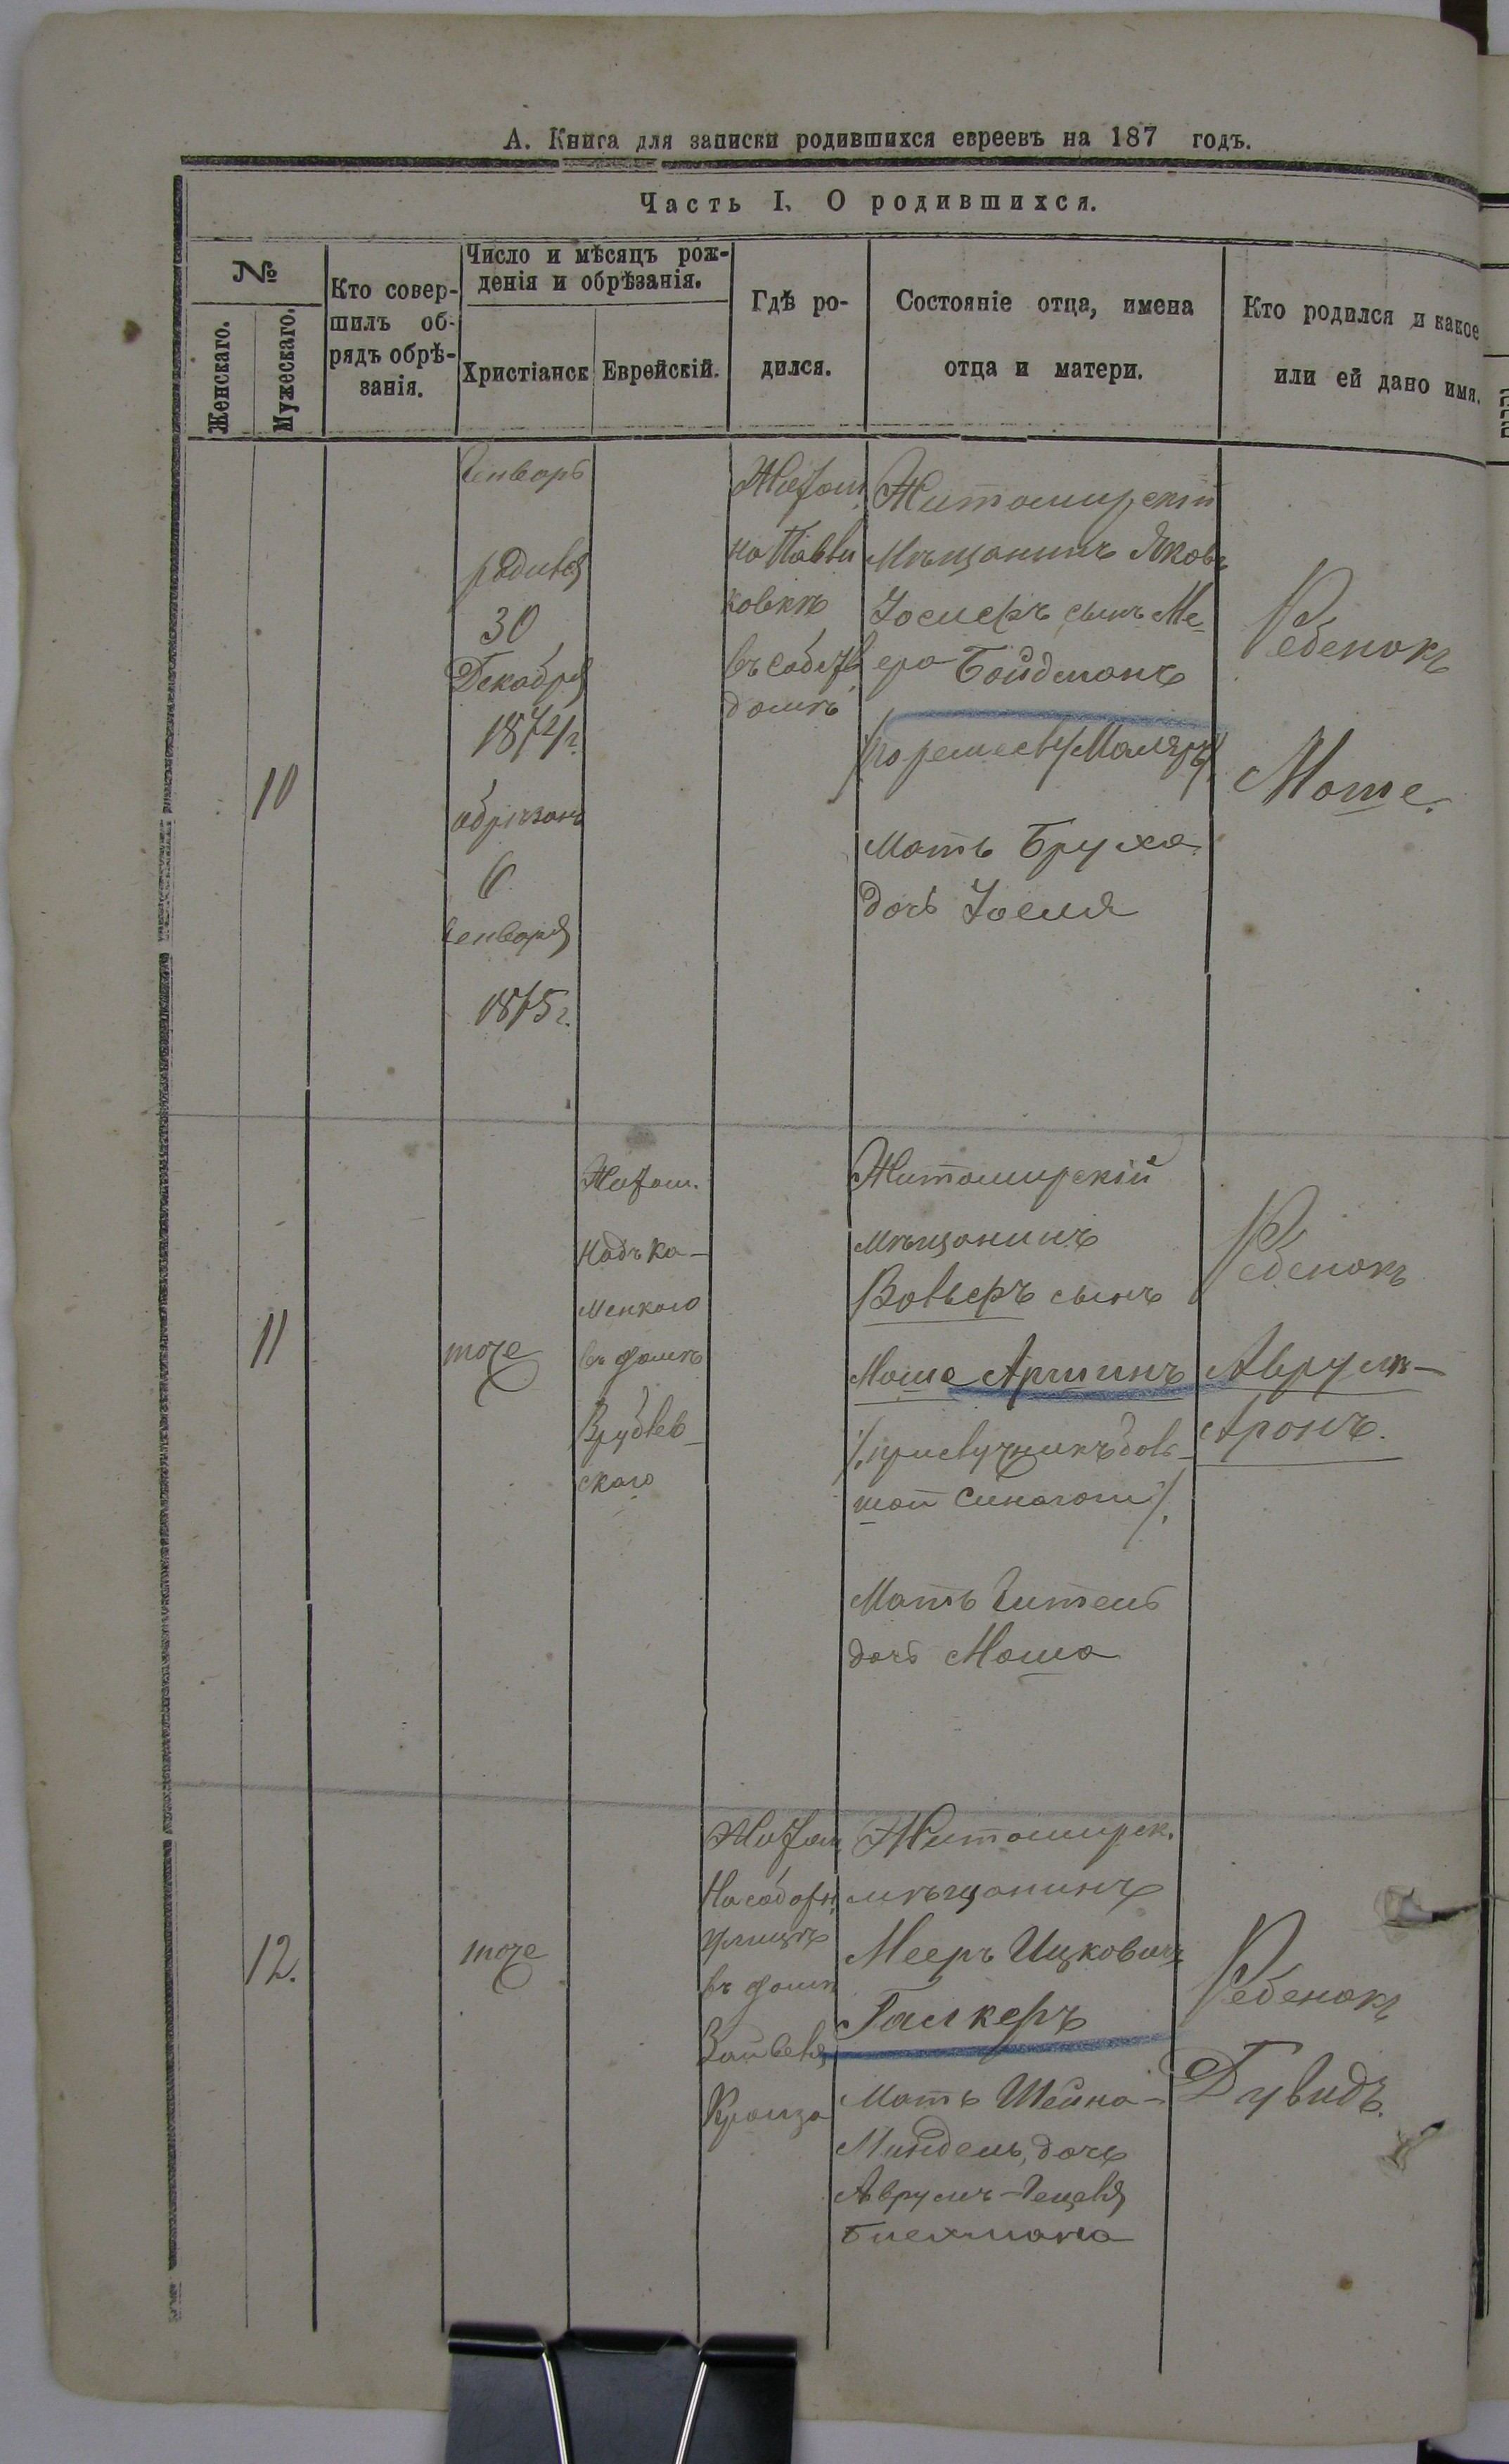 А. Книга для записки родившихся евреевъ на 187 годъ.
Часть I. О родившихся.
№
Женскаго.
Мужескаго.
Кто совер-
шилъ об-
рядъ обрѣ-
занія.
Число и мѣсяцъ рож-
денія и обрѣзанія.
Христіанск
Еврейскій.
Гдѣ ро-
дился.
Состояніе отца, имена
отца и матери.
Кто родился и какое
или ей дано имя.
10
Генварь
родився
30
Декабря
1874 г.
обрѣзанъ
6
Генваря
1875 г.
Житом.
на Павли
ковкѣ
въ собств
домѣ
Житомирскій
Мѣщанинъ Яковъ
Іосифъ сынъ Ме-
ера Бойдманъ
/по ремеслу Маляръ/
Мать Бруха
дочь Іоеля
Ребенокъ
Моше.
11
тоже
Житом.
Надъ Ка-
менкою
въ домѣ
Врублев-
скаго
Житомирскій
мѣщанинъ
Вольфъ сынъ
Моше Аршинъ
/прислужникъ боль-
шой Синагоги/.
Мать Гитель
дочь Моша
Ребенокъ
Аврумъ-
Аронъ.
12.
тоже
Житом.
На соборн.
улицѣ
въ домѣ
Крамза
Житомирск.
мѣщанинъ
Мееръ Ицковичъ
Мать Шейна-
Миндель, дочь
Аврумъ-
Ребенокъ
Дувидъ.